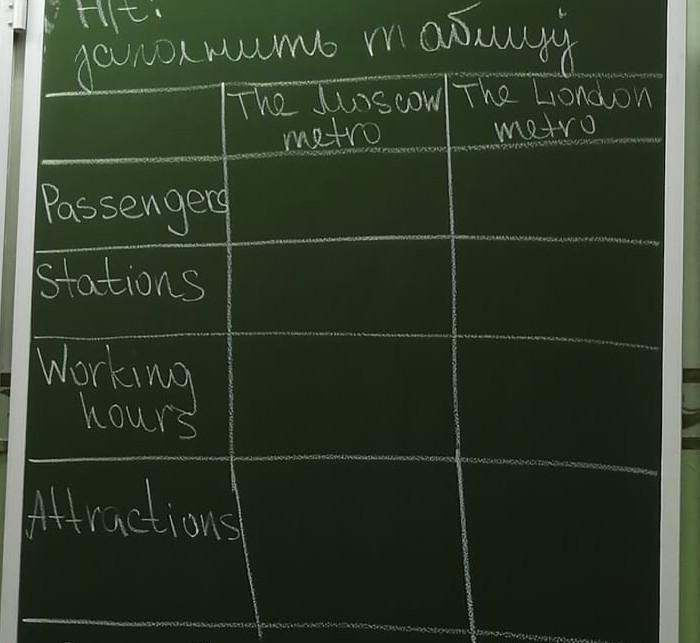 H/t:
заполнить таблицу
The Moscow metro
The London metro
Passengers
Stations
Working
hours
Attractions